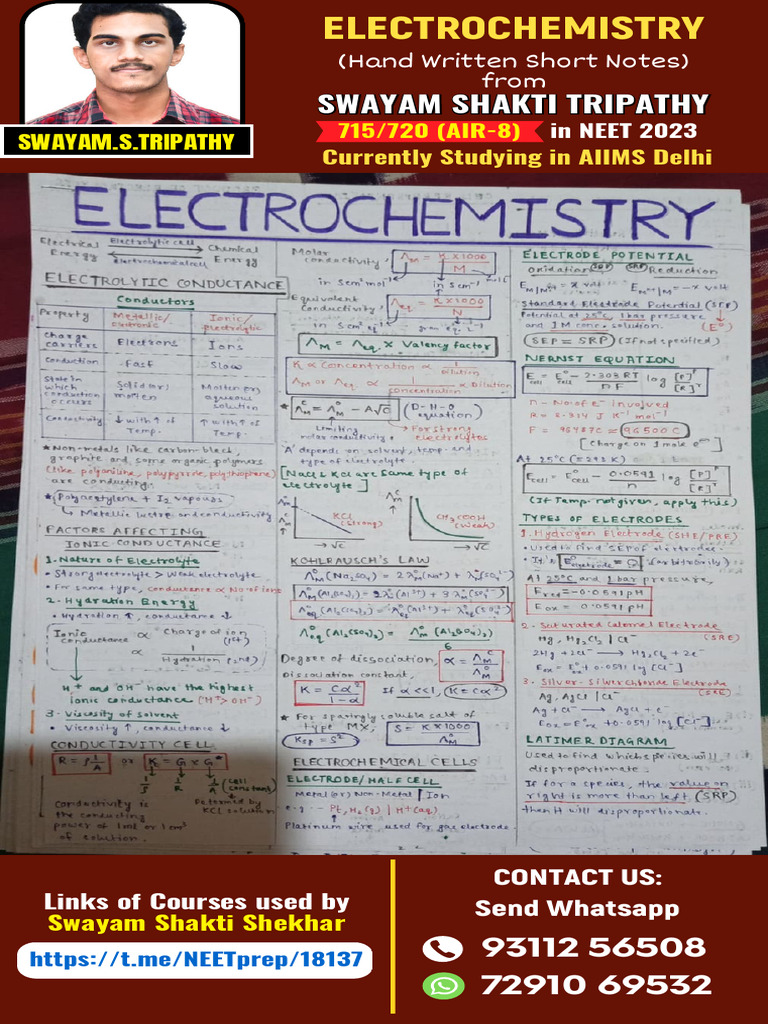 ELECTROCHEMISTRY
(Hand Written Short Notes)
from
SWAYAM SHAKTI TRIPATHY
715/720 (AIR-8) in NEET 2023
Currently Studying in AIIMS Delhi
SWAYAM.S.TRIPATHY
ELECTROCHEMISTRY
Electrical Energy
Electrolytic cell
Electrochemical cell
Chemical Energy
ELECTROLYTIC CONDUCTANCE
Conductors
Property Metallic/electronic Ionic/electrolytic
Charge carriers Electrons Ions
Conduction Fast Slow
State in which conduction occurs Solid or molten Molten or aqueous solution
Conductivity ↓ with ↑ of Temp. ↑ with ↑ of Temp.
* Non-metals like carbon-black,
graphite and some organic polymers
(like polyaniline, polypyrrole, polythiophene)
are conducting.
* Polyacetylene + I₂ vapours
↳ Metallic lustre and conductivity
FACTORS AFFECTING
IONIC CONDUCTANCE
1- Nature of Electrolyte
• Strong electrolyte > Weak electrolyte
• For same type, conductance ∝ No of ions
2- Hydration Energy
• Hydration ↑, conductance ↓
Ionic conductance ∝ Charge of ion (1st)
∝ 1/Hydration (2nd)
H⁺ and OH⁻ have the highest
ionic conductance (H⁺ > OH⁻)
3- Viscosity of solvent
• Viscosity ↑, conductance ↓
CONDUCTIVITY CELL
R = ρ l/A or K = G × G*
(cell constant)
Determined by
KCl solution
Conductivity is
the conducting
power of 1 ml or 1 cm³
of solution.
Molar conductivity, Λm = K×1000/M
in S cm² mol⁻¹ in S cm⁻¹
Equivalent conductivity, Λeq = K×1000/N
in S cm² eq⁻¹
Λm = Λeq × Valency factor
K ∝ Concentration ∝ 1/Dilution
Λm or Λeq ∝ 1/Concentration ∝ Dilution
* Λm^c = Λm° - A√c (D-H-O equation)
Limiting molar conductivity
For strong electrolytes
'A' depends on solvent, temp. and
type of electrolyte
[NaCl & KCl are same type of
electrolyte]
Λm^c KCl (Strong) → √c
Λm^c CH₃COOH (Weak) → √c
KOHLRAUSCH'S LAW
Λm° (Na₂SO₄) = 2λm°(Na⁺) + λm°(SO₄²⁻)
Λm° (Al₂(SO₄)₃) = 2λm°(Al³⁺) + 3λm°(SO₄²⁻)
Λeq° (Al₂(SO₄)₃) = λeq°(Al³⁺) + λeq°(SO₄²⁻)
Λeq° (Al₂(SO₄)₃) = Λm° (Al₂(SO₄)₃)/6
Degree of dissociation, α = Λm^c/Λm°
Dissociation constant,
K = Cα²/1-α If α<<1, K = Cα²
* For sparingly soluble salt of
type MX, S = K×1000/Λm°
Ksp = S²
ELECTROCHEMICAL CELLS
ELECTRODE/HALF CELL
Metal (or) Non-Metal | Ion
e.g.- Pt, H₂(g) | H⁺(aq)
Platinum wire used for gas electrode.
ELECTRODE POTENTIAL
Oxidation SRP Reduction
Standard Electrode Potential (SEP)
Potential at 25°C, 1 bar pressure
and 1 M conc. solution. (E°)
(SEP = SRP) (If not specified)
NERNST EQUATION
Ecell = E°cell - 2.303RT/nF log [P]/[R]
n - No of e⁻ involved
R = 8.314 J K⁻¹ mol⁻¹
F = 96487C = 96500 C
[Charge on 1 mole e⁻]
At 25°C (298K)
Ecell = E°cell - 0.0591/n log [P]/[R]
(If Temp. not given, apply this)
TYPES OF ELECTRODES
1- Hydrogen Electrode (SHE/PRE)
• Used to find SEP of electrode.
(arbitrarily)
At 25°C and 1 bar pressure,
Ered = -0.0591 pH
Eox = 0.0591 pH
2- Saturated Calomel Electrode
(SRE)
Hg, Hg₂Cl₂ | Cl⁻
2Hg + 2Cl⁻ → Hg₂Cl₂ + 2e⁻
Eox = E°ox + 0.0591 log [Cl⁻]
3- Silver-Silver chloride Electrode
(SRE)
Ag, AgCl | Cl⁻
Ag + Cl⁻ → AgCl + e⁻
Eox = E°ox + 0.0591 log [Cl⁻]
LATIMER DIAGRAM
Used to find which species will
disproportionate.
If for a species, the value on
right is more than left (SRP)
then it will disproportionate.
Links of Courses used by
Swayam Shakti Shekhar
https://t.me/NEETprep/18137
CONTACT US:
Send Whatsapp
93112 56508
72910 69532